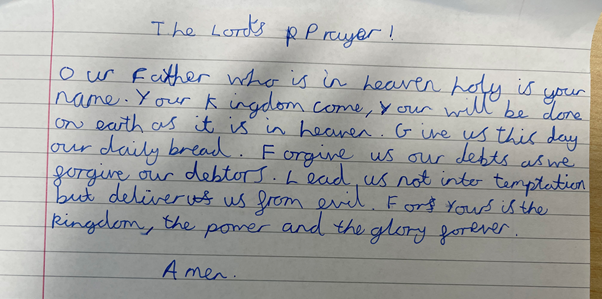 The Lord's Prayer!
Our Father who is in heaven holy is your
name. Your Kingdom come, Your will be done
on earth as it is in heaven. Give us this day
our daily bread. Forgive us our debts as we
forgive our debtors. Lead us not into temptation
but deliver us from evil. For Yours is the
kingdom, the power and the glory forever.
Amen.